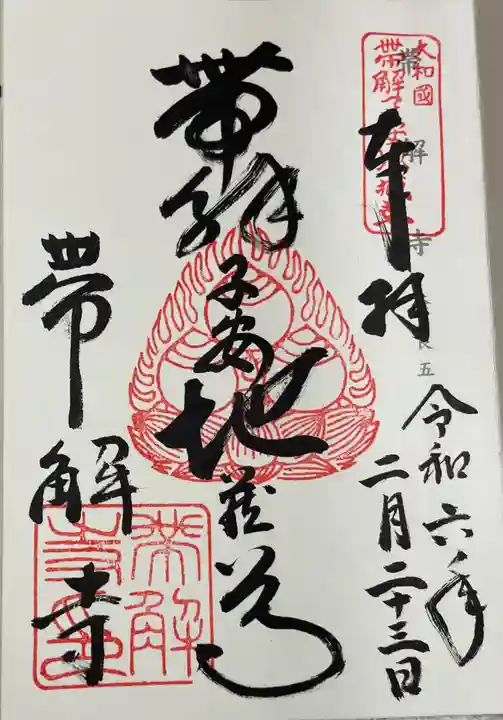 大和國
帯解子安地蔵尊
帯解寺
奉拝
令和六年
二月二十三日
帯解子安地蔵尊
帯解寺
帯解
寺印